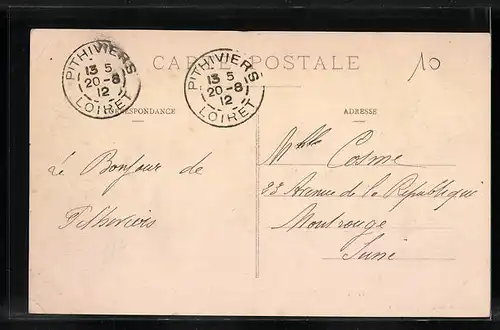 CARTE POSTALE
10
PITHIVIERS
13 5
20-8
12
LOIRET
PITHIVIERS
13 5
20-8
12
LOIRET
CORRESPONDANCE
ADRESSE
Le Bonjour de
Pithiviers
Cosme
33 Avenue de la République
Montrouge
Seine